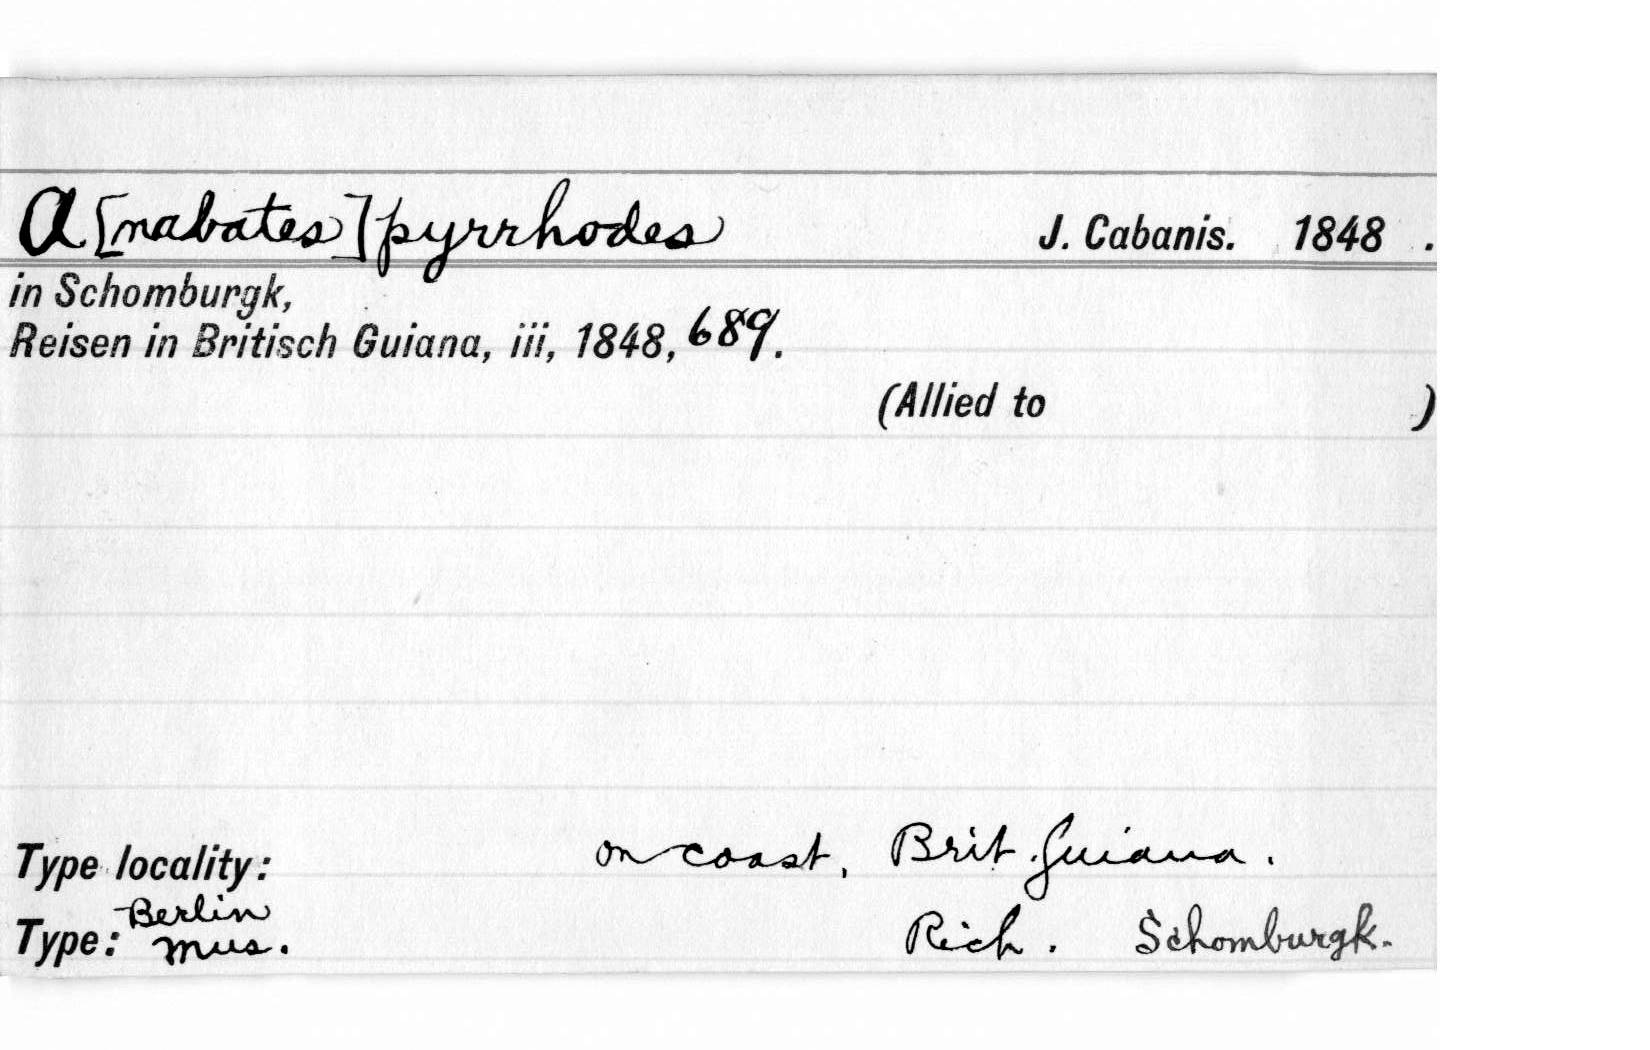 A[nabates] pyrrhodes J. Cabanis. 1848 .
in Schomburgk,
Reisen in Britisch Guiana, iii, 1848, 689.
(Allied to )
Type locality: on coast, Brit. Guiana.
Type: Berlin Mus. Rich. Schomburgk.